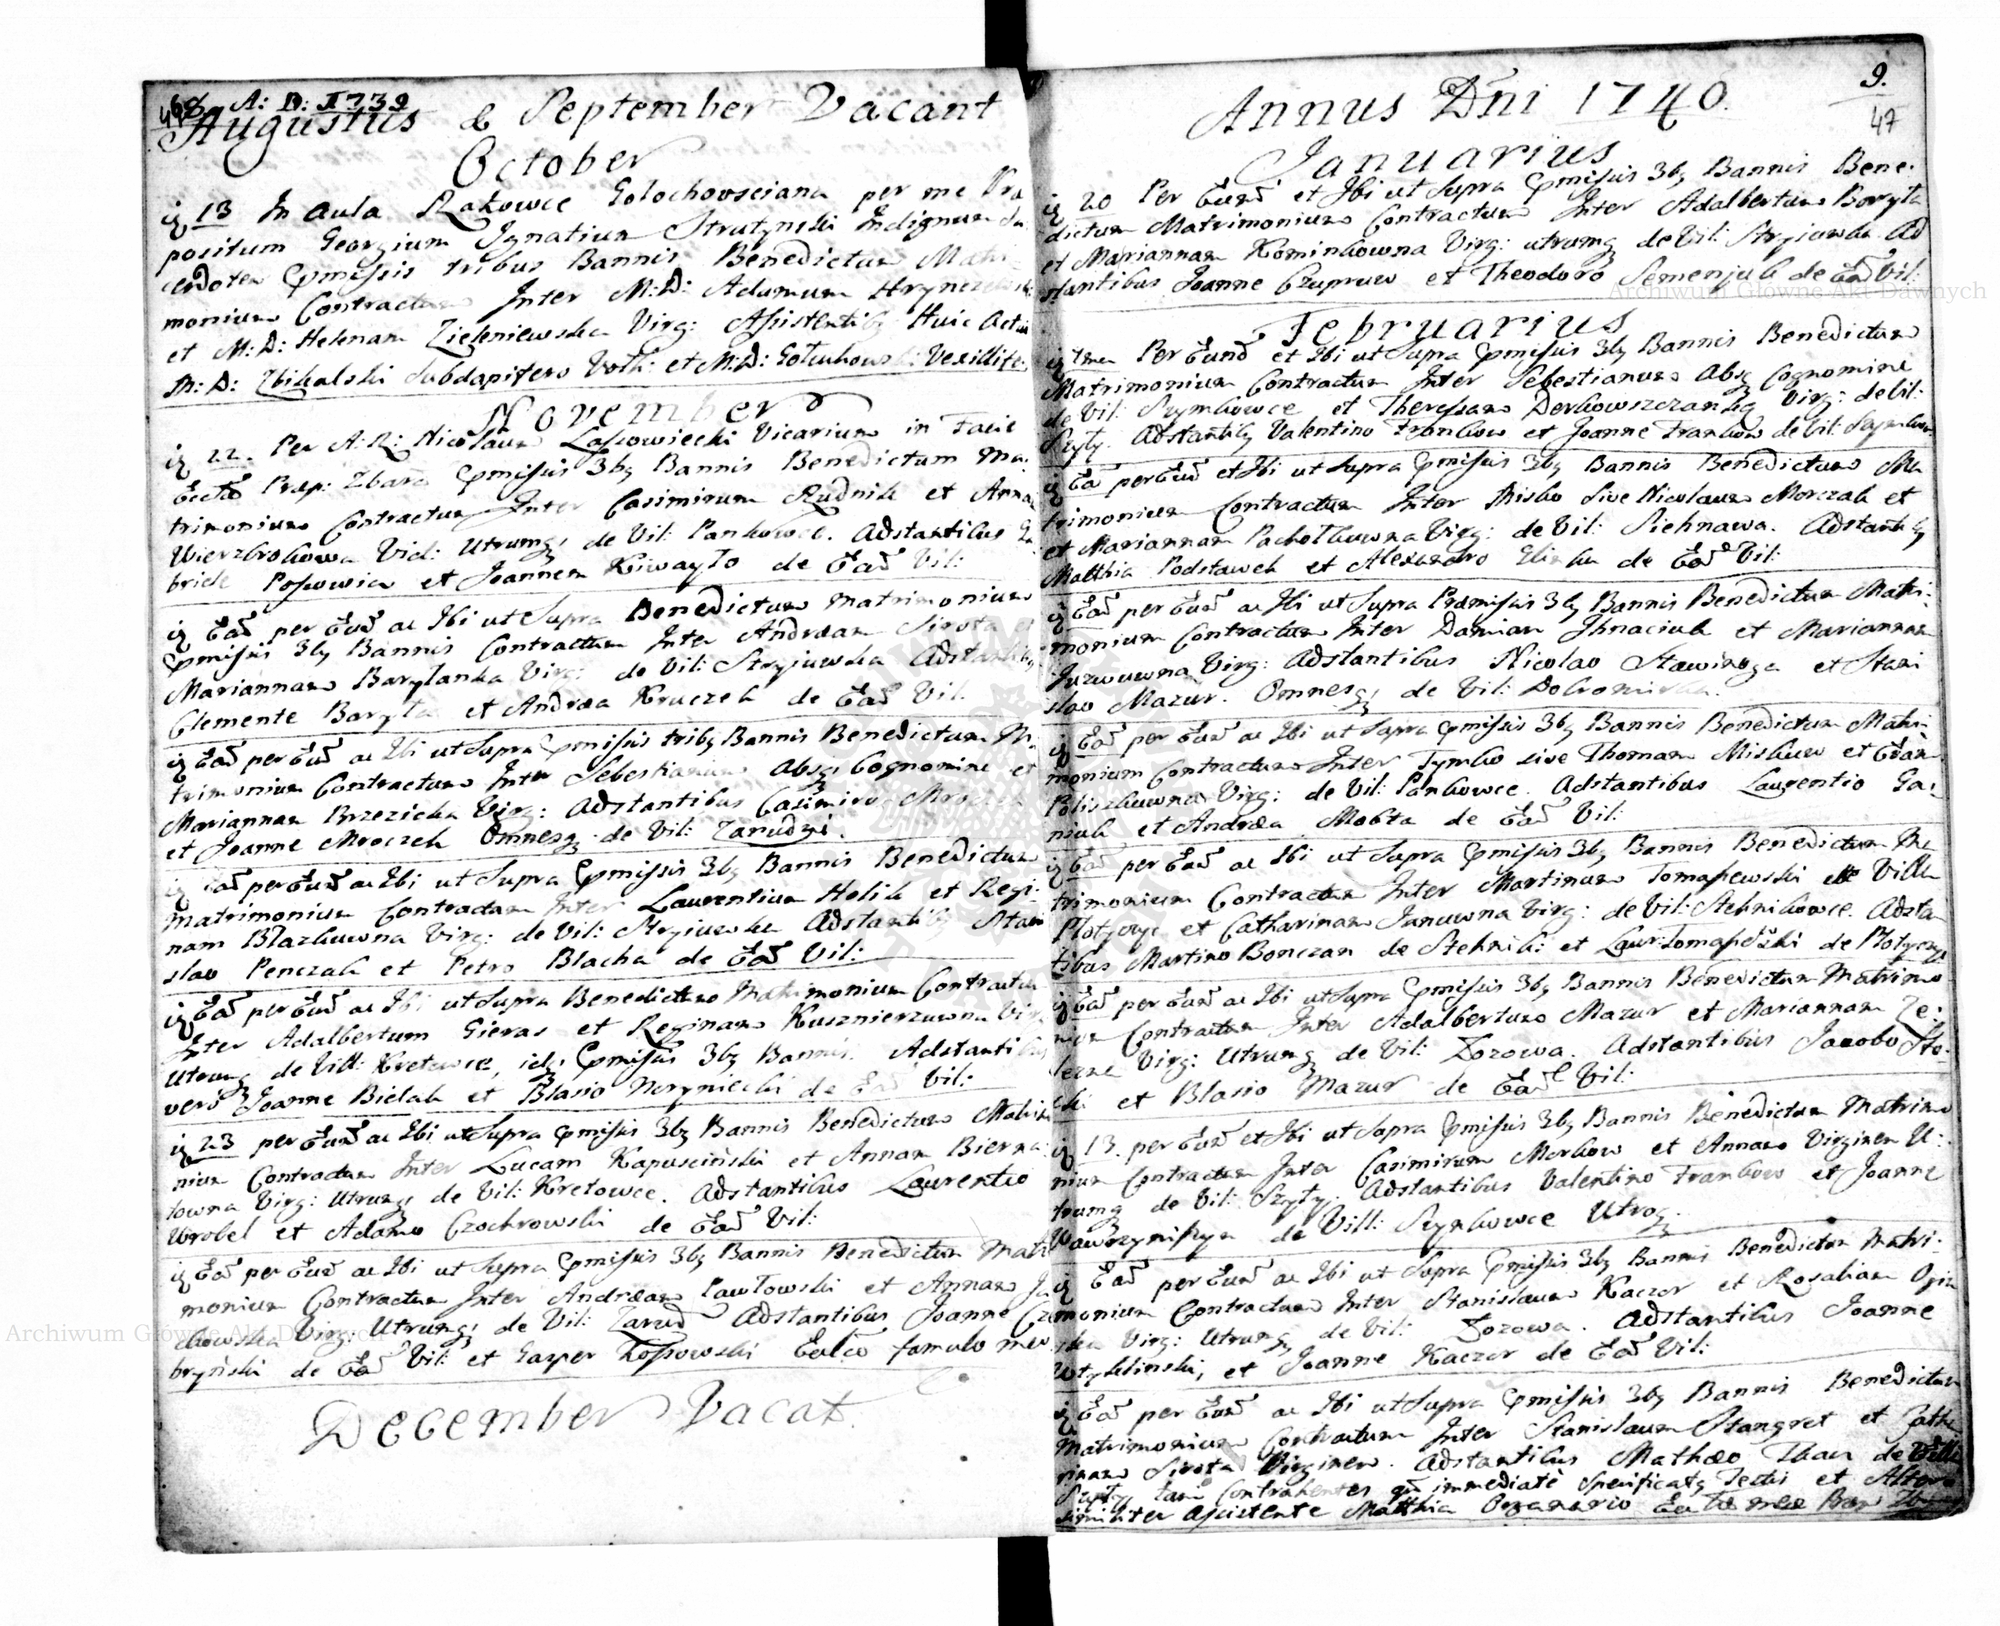 468 A: D: 1739
Augustus & September Vacant
October
13 In Aula Rakowce Golochovsciana per me Præ
positum Georgium Ignatium Strutynski Indignum Sa
cerdotem Pmissis tribus Bannis Benedictum Matri
monium Contractum Inter M: D: Adamum
et M: D: Helenam Zieleniewska Virg: Assistentibq Huic Actui
M: D: Zbikalski Subdapifero et M: D: Vexillife:
November
22. Per A: R: Nicolaum Lassowiecki Vicarium in Facie
Eccłæ Præp: Zbara Pmissis 3bq Bannis Benedictum Ma:
trimonium Contractum Inter Casimirum Rudnik et Anna
Wierzbrokowa Vid: Utrumqs de Vil: Pankowce. Adstantibus Ga
briele et Joannem Kiwayło de Ead Vil:
Ead per Eud ac Ibi ut Supra Benedictum Matrimonium
Pmissis 3bq Bannis Contractum Inter Andræam Sirota et
Mariannam Barylanka Virg: de Vil: Stryiuwka Adstantibq
Clemente Baryła et Andræa Kruczek de Ead Vil.
Ead per Eud ac Ibi ut Supra Pmissis tribq Bannis Benedictum Ma:
trimonium Contractum Inter Sebestianum Absqs Cognomine et
Mariannam Brzezicka Virg: Adstantibus Casimiro Mroczek
et Joanne Mroczek Omnesq de Vil: Zarudzi.
Ead per Eund ac Ibi ut Supra Pmissis 3bq Bannis Benedictum
Matrimonium Contractum Inter Laurentium Holik et Regi:
nam Błazkuwna Virg: de Vil: Stryiuwka Adstantibq Stani
slao Penczak et Petro Blacha de Ead Vil:
Ead per Eud ac Ibi ut Supra Benedictum Matrimonium Contractum
Inter Adalbertum Gieras et Reginam Kusznierzuwna Virg
Utrumq de Vill: Kretowce, Pmissis 3bq Bannis. Adstantibus
vero Joanne Bielak et Blasio de Ead Vil:
23 per Eund ac Ibi ut Supra Pmissis 3bq Bannis Benedictum Matrim
nium Contractum Inter Lucam Kapusciński et Annam Bierna:
towna Virg: Utrumq de Vil: Kretowce. Adstantibus Laurentio
Wrobel et Adamo Czochrowski de Ead Vil:
Ead per Eud ac Ibi ut Supra Pmissis 3bq Bannis Benedictum Matri
monium Contractum Inter Andræam Pawłowski et Annam Ja
ckowska Virg: Utrumqs de Vil: Zarud Adstantibus Joanne Czo
bryński de Ead Vil: et Gasper Łossowski famulo meo
December Vacat.
9.
47
Annus Dni 1740.
Januarius
20 Per Eund et Ibi ut Supra Pmissis 3bq Bannis Bene:
dictum Matrimonium Contractum Inter Adalbertum Boryła
et Mariannam Kominkowna Virg: utrumq de Vil: Stryiuwka Ad
stantibus Joanne Czupruw et Theodoro Semenjuk de Ead Vil:
Februarius
Per Eund et Ibi ut Supra Pmissis 3bq Bannis Benedictum
Matrimonium Contractum Inter Sebestianum Absq Cognomine
de Vil: Szymkowce et Theressam Virg: de Vil:
Szyły. Adstantibq Valentino Frankow et Joanne Frankow de Vil: Szymkow
Ead per Eud et Ibi ut Supra Pmissis 3bq Bannis Benedictum Ma
trimonium Contractum Inter Misko Sive Nicolaum Morczak et
et Mariannam Pachołkuwna Virg: de Vil: Siehnawa. Adstantibq
Matthia Podstawek et Alexandro de Ead Vil:
Ead per Eund ac Ibi ut Supra Præmissis 3bq Bannis Benedictum Matri:
monium Contractum Inter Damian Ihnaciuk et Mariannam
Juzwuwna Virg: Adstantibus Nicolao et Stani
slao Mazur. Omnesqs de Vil: Dobromirka.
Ead per Eund ac Ibi ut Supra Pmissis 3bq Bannis Benedictum Matri:
monium Contractum Inter Tymko sive Thomam Miskuw et
Poliszkuwna Virg: de Vil: Pankowce. Adstantibus Laurentio Ga:
niuk et Andræa Mokta de Ead Vil:
Ead per Eud ac Ibi ut Supra Pmissis 3bq Bannis Benedictum Ma
trimonium Contractum Inter Martinum Tomaszewski Villa
Płotycze et Catharinam Jancuwna Virg: de Vil: Stehnikowce. Adstan
tibus Martino Bonczar de Stehnik: et Laur: Tomaszewski de Płotycz
Ead per Eund ac Ibi ut Supra Pmissis 3bq Bannis Benedictum Matrimo
nium Contractum Inter Adalbertum Mazur et Mariannam Ze:
Virg: Utrumq de Vil: Iozowa. Adstantibus Jacobo Sto:
cki et Blasio Mazur de Ead Vil:
13. per Eund et Ibi ut Supra Pmissis 3bq Bannis Benedictum Matrimo
nium Contractum Inter Casimirum Morkow et Annam Virginem U:
trumq de Vil: Szyły. Adstantibus Valentino Frankow et Joanne
Wawrzyniszyn de Vill: Szymkowce Utroq.
Ead per Eund ac Ibi ut Supra Pmissis 3bq Bannis Benedictum Matri:
monium Contractum Inter Stanislaum Kaczor et Rosaliam
Virg: Utrumq de Vil: Iozowa. Adstantibus Joanne
et Joanne Kaczor de Ead Vil:
Ead per Eund ac Ibi ut Supra Pmissis 3bq Bannis Benedictum
Matrimonium Contractum Inter Stanislaum Stangret et Catha
rinam Sirota Virginem. Adstantibus Mathæo Tkacz de Villa
Szyły tam Contrahentes qm immediatè Specificatq Testis et Altero
similiter Assistente Matthia Organario
Archiwum Główne Akt Dawnych
Archiwum Główne Akt Dawnych